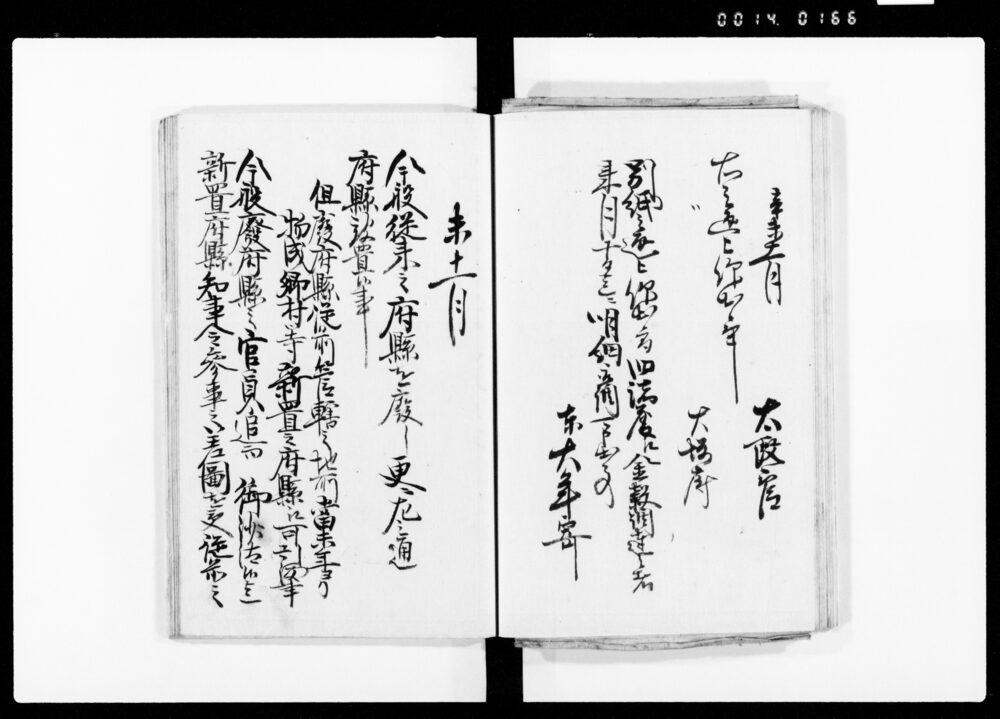 0014. 0166
辛未十一月
太政官
右之通被仰出候事
大阪府
別紙之通被仰出候ニ付旧諸府県金穀調達之者
来月十五日迄ニ明細書
東大年寄
未十一月
今般従来之府縣を廃し更ニ左之通
府縣被置候事
但廃府縣従前管轄之地所当未年ゟ
物成郷村等新置之府縣江可引渡事
今般廃府縣之官員追而御沙汰候迄
新置府縣知事令参事之差図を受従前之